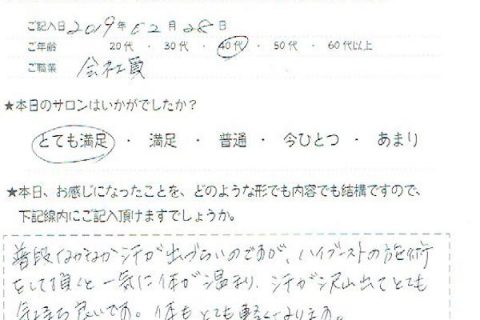 ご記入日 2019年02月28日
ご年齢 20代 ・ 30代 ・ 40代 ・ 50代 ・ 60代以上
ご職業 会社員
★本日のサロンはいかがでしたか？
とても満足 ・ 満足 ・ 普通 ・ 今ひとつ ・ あまり
★本日、お感じになったことを、どのような形でも内容でも結構ですので、
下記線内にご記入頂けますでしょうか。
普段なかなか汗が出づらいのですが、ハイブーストの施術
をして頂くと一気に体が温まり、汗が沢山出てとても
気持ち良いです。体もとても軽くなります。